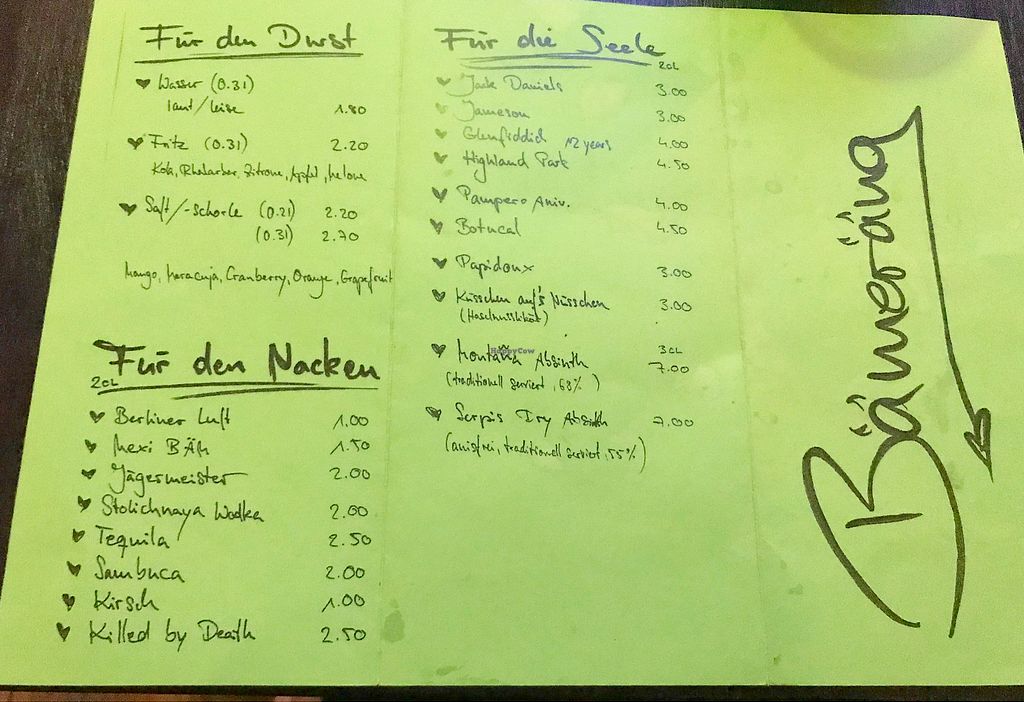 Für den Durst
Wasser (0.3l)
laut/leise 1.80
Fritz (0.3l) 2.20
Kola, Rhabarber, Zitrone, Apfel, Melone
Saft/-schorle (0.2l) 2.20
(0.3l) 2.70
Mango, Maracuja, Cranberry, Orange, Grapefruit
Für den Nacken
2cL
Berliner Luft 1.00
Mexi BÄH 1.50
Jägermeister 2.00
Stolichnaya Wodka 2.00
Tequila 2.50
Sambuca 2.00
Kirsch 1.00
Killed by Death 2.50
Für die Seele
2cL
Jack Daniels 3.00
Jameson 3.00
Glenfiddich 12 years 4.00
Highland Park 4.50
Pampero Aniv. 4.00
Botucal 4.50
Papidoux 3.00
Küsschen auf's Nüsschen 3.00
(Haselnusslikör)
3cL
Montaña Absinth 7.00
(traditionell serviert, 68%)
Serpis Dry Absinth 7.00
(anisfrei, traditionell serviert, 55%)
Bämeräng
HappyCow